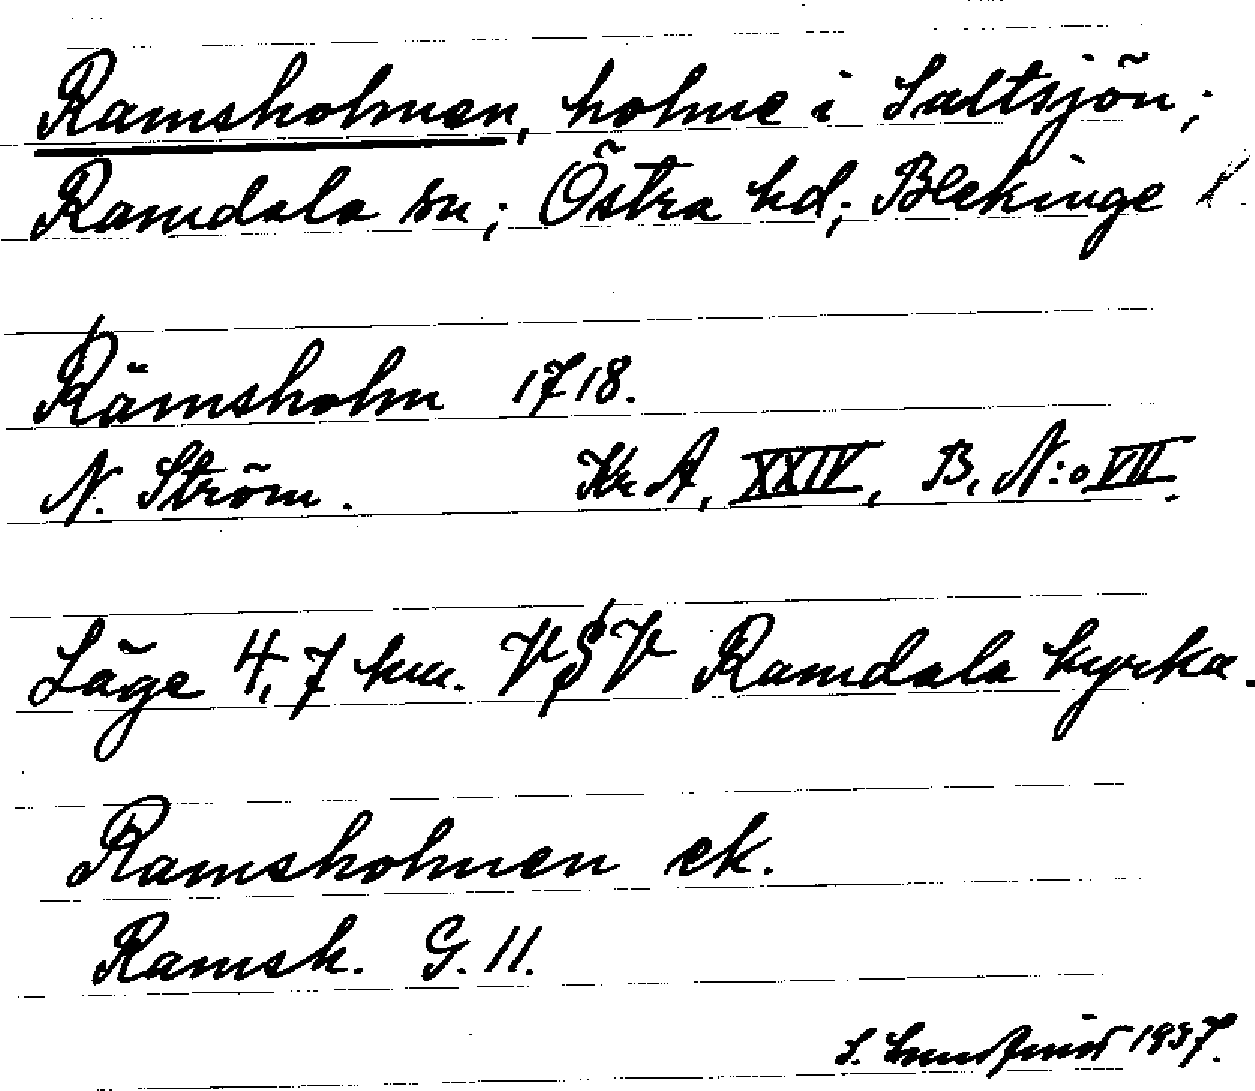 Ramsholmen, holme i Saltsjön;
Ramdala sn; Östra hd; Blekinge l.
Rämsholm 1718.
N. Ström. Kr A, XXIV, B, N:o VII.
Läge 4,7 km. V§V Ramdala kyrka.
Ramsholmen ek.
Ramsh. G. 11.
S. 1937.